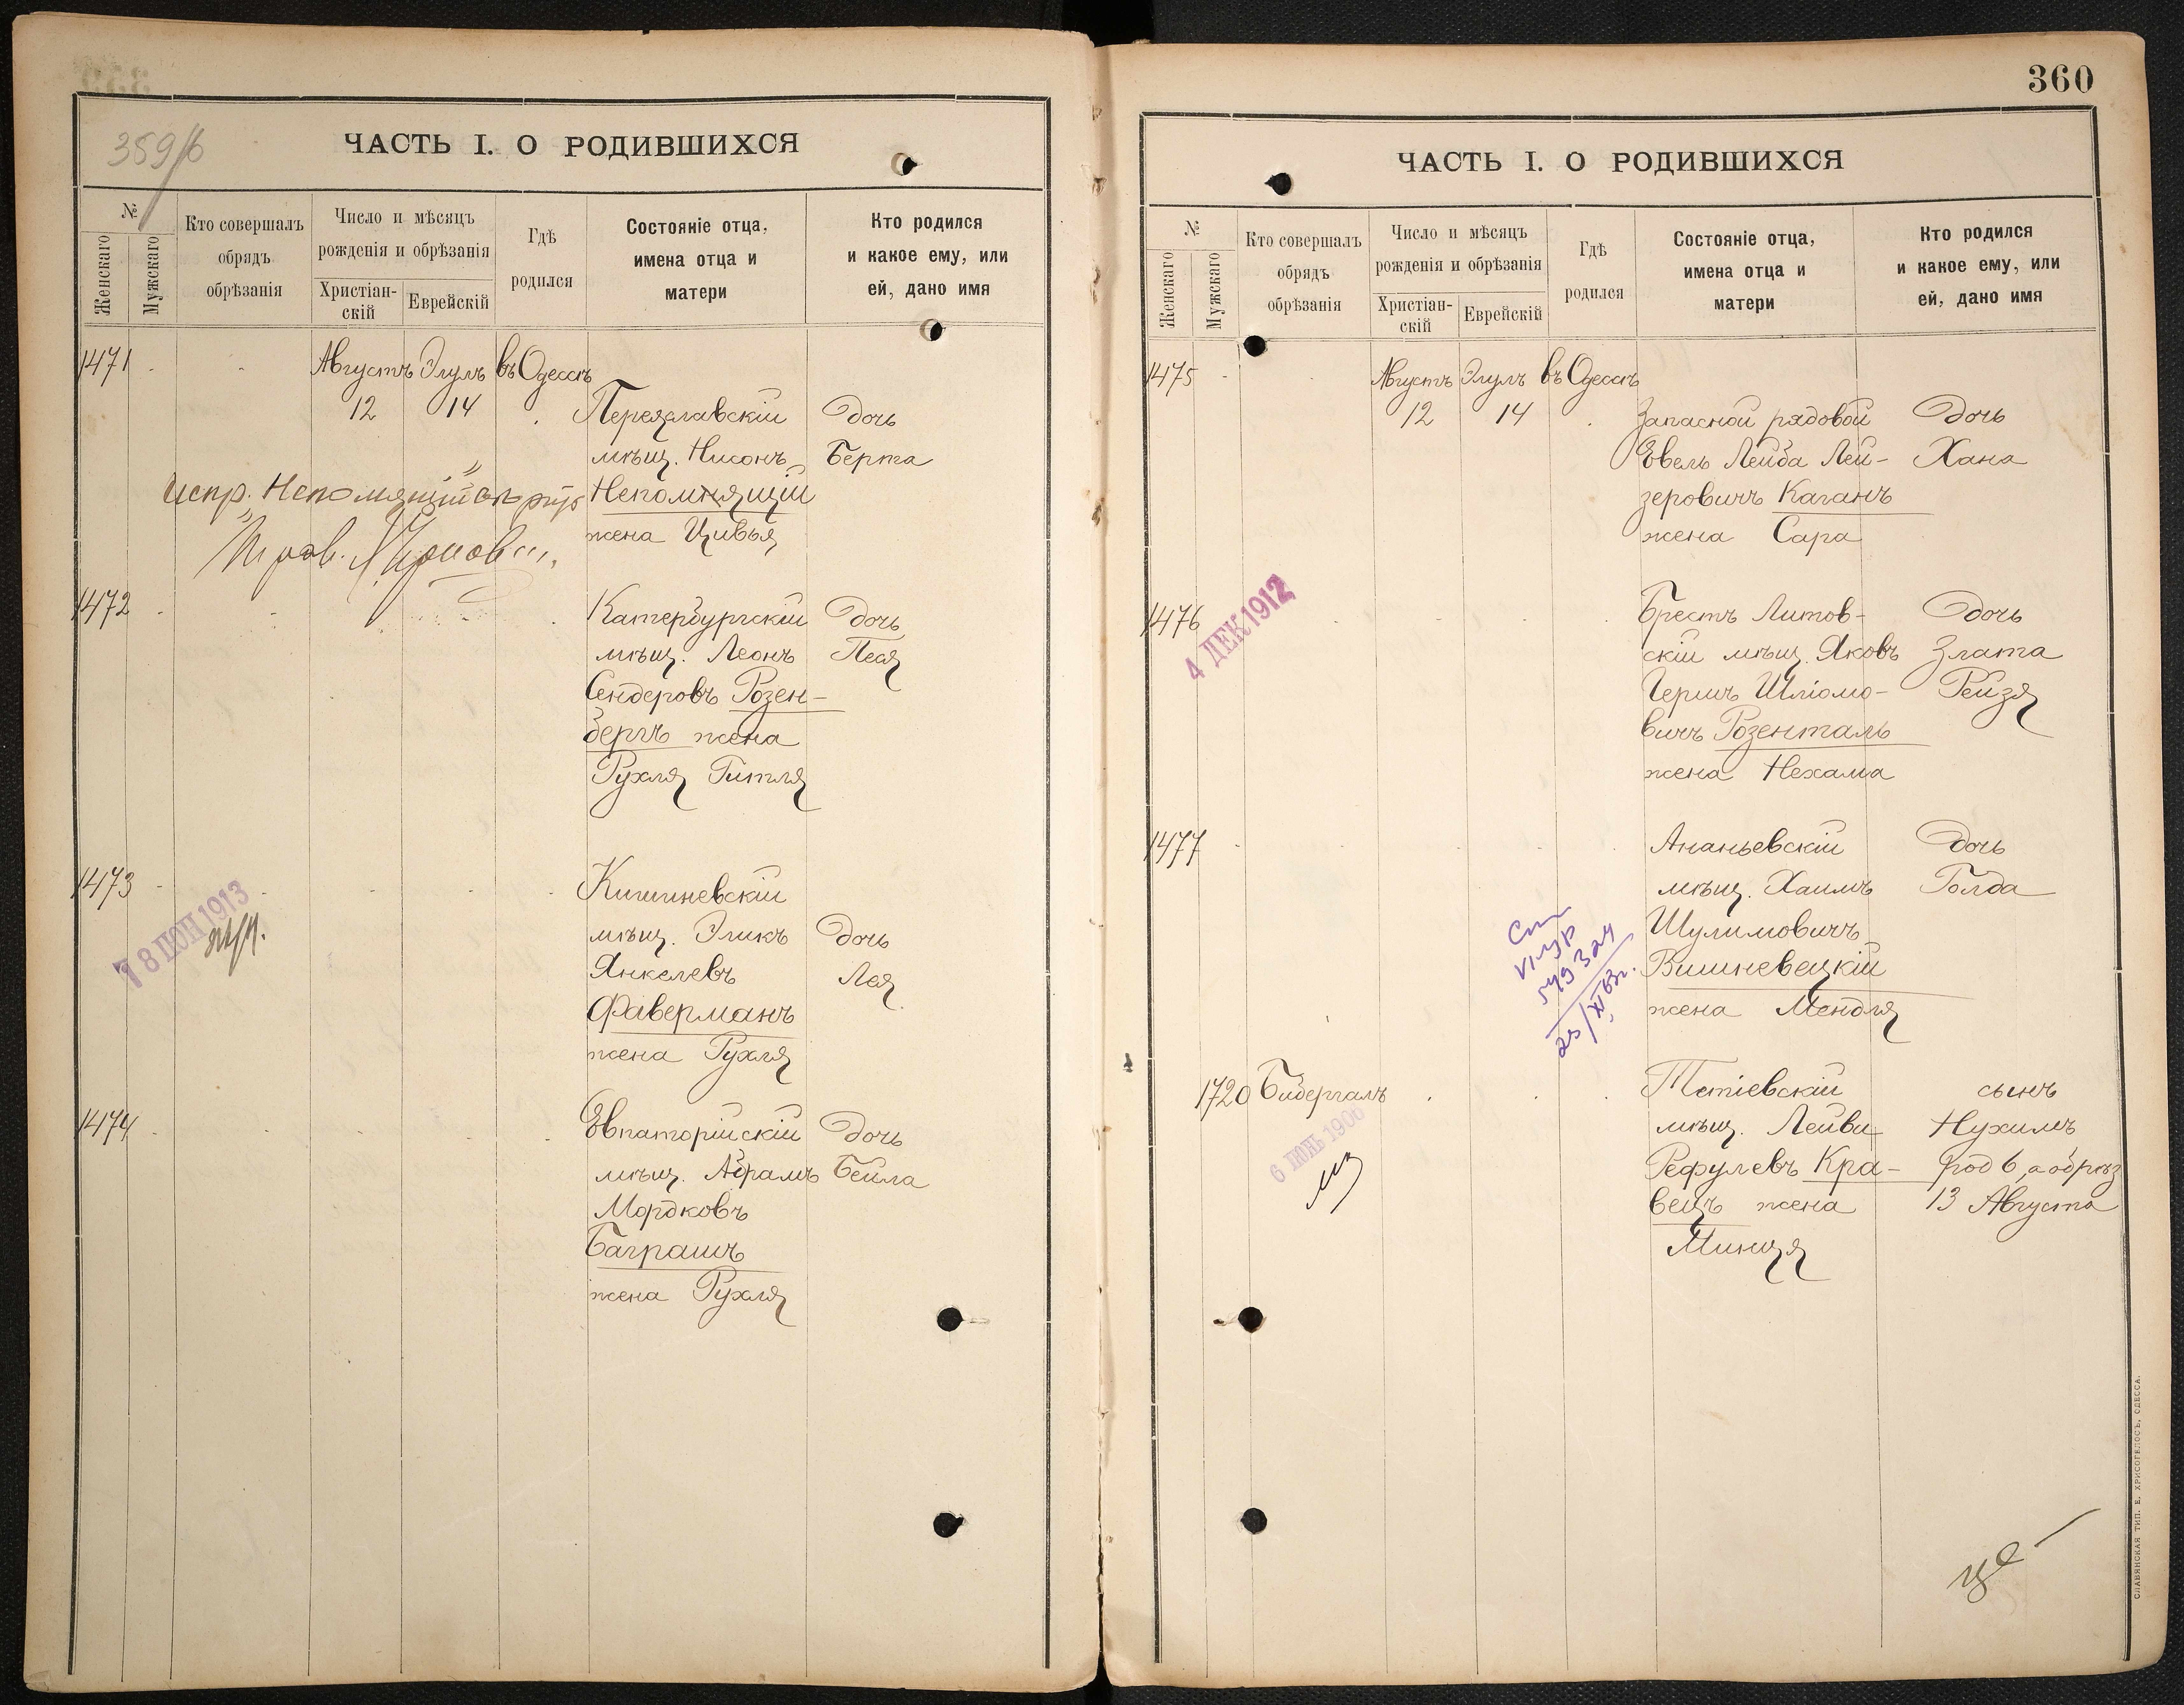 359/б
ЧАСТЬ I. О РОДИВШИХСЯ
№
Женскаго
Мужскаго
Кто совершалъ
обрядъ
обрѣзанія
Число и мѣсяцъ
рожденія и обрѣзанія
Христіан-
скій
Еврейскій
Гдѣ
родился
Состояніе отца,
имена отца и
матери
Кто родился
и какое ему, или
ей, дано имя
1471 Августъ Элулъ въ Одессѣ
12 14 Переяславскій Дочь
мѣщ. Нисонъ Берта
Испр. „Непомящій" Непомнящій
жена Цивья
1472 Катербургскій Дочь
мѣщ. Леонъ Песя
Сендеровъ Розен-
бергъ жена
Рухля Гитля
1473 Кишиневскій
18 ІЮН 1913
мѣщ. Эликъ Дочь
Янкелевъ Лея
Фаверманъ
жена Рухля
1474 Евпаторійскій Дочь
мѣщ. Абрамъ Бейла
Мордковъ
Баграшъ
жена Рухля
360
ЧАСТЬ I. О РОДИВШИХСЯ
№
Женскаго
Мужскаго
Кто совершалъ
обрядъ
обрѣзанія
Число и мѣсяцъ
рожденія и обрѣзанія
Христіан-
скій
Еврейскій
Гдѣ
родился
Состояніе отца,
имена отца и
матери
Кто родился
и какое ему, или
ей, дано имя
1475 Августъ Элулъ въ Одессѣ
12 14 Запасной рядовой Дочь
Евель Лейба Лей- Хана
зеровичъ Каганъ
жена Сара
4 ДЕК 1912
1476 Брестъ Литов- Дочь
скій мѣщ. Яковъ Злата
Гершъ Шліомо- Рейзя
вичъ Розенталь
жена Нехама
1477 Ананьевскій Дочь
мѣщ. Хаимъ Голда
Шулимовичъ
Вишневецкій
жена Мендля
1720 Бибергалъ Тетіевскій сынъ
6 ІЮНЬ 1906
мѣщ. Лейви Нухимъ
Рефулевъ Кра- род 6, а обрѣз
вецъ жена 13 Августа
Минця
СЛАВЯНСКАЯ ТИП. Е. ХРИСОГЕЛОСЪ, ОДЕССА.